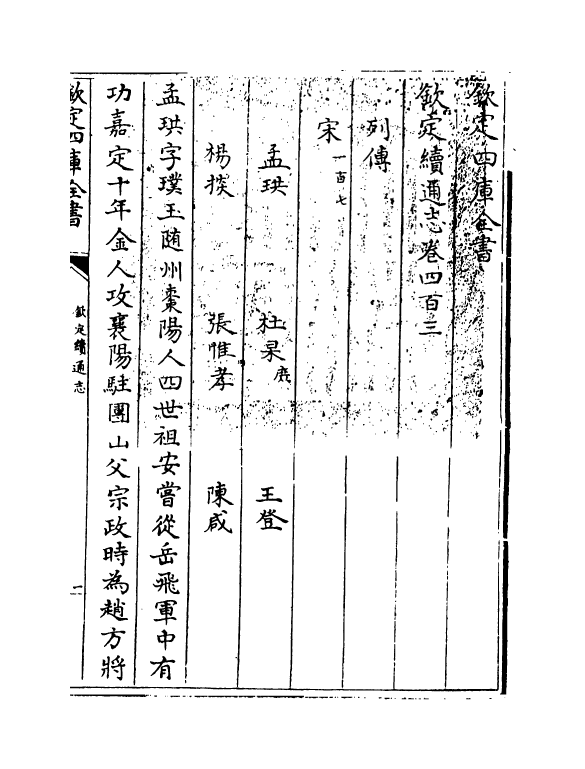 欽定四庫全書
欽定續通志卷四百三
列傳
宋一百七
孟珙 杜杲庶 王登
楊掞 張惟孝 陳咸
孟珙字璞玉隨州棗陽人四世祖安嘗從岳飛軍中有
功嘉定十年金人攻襄陽駐團山父宗政時為趙方將
欽定四庫全書 欽定續通志 一